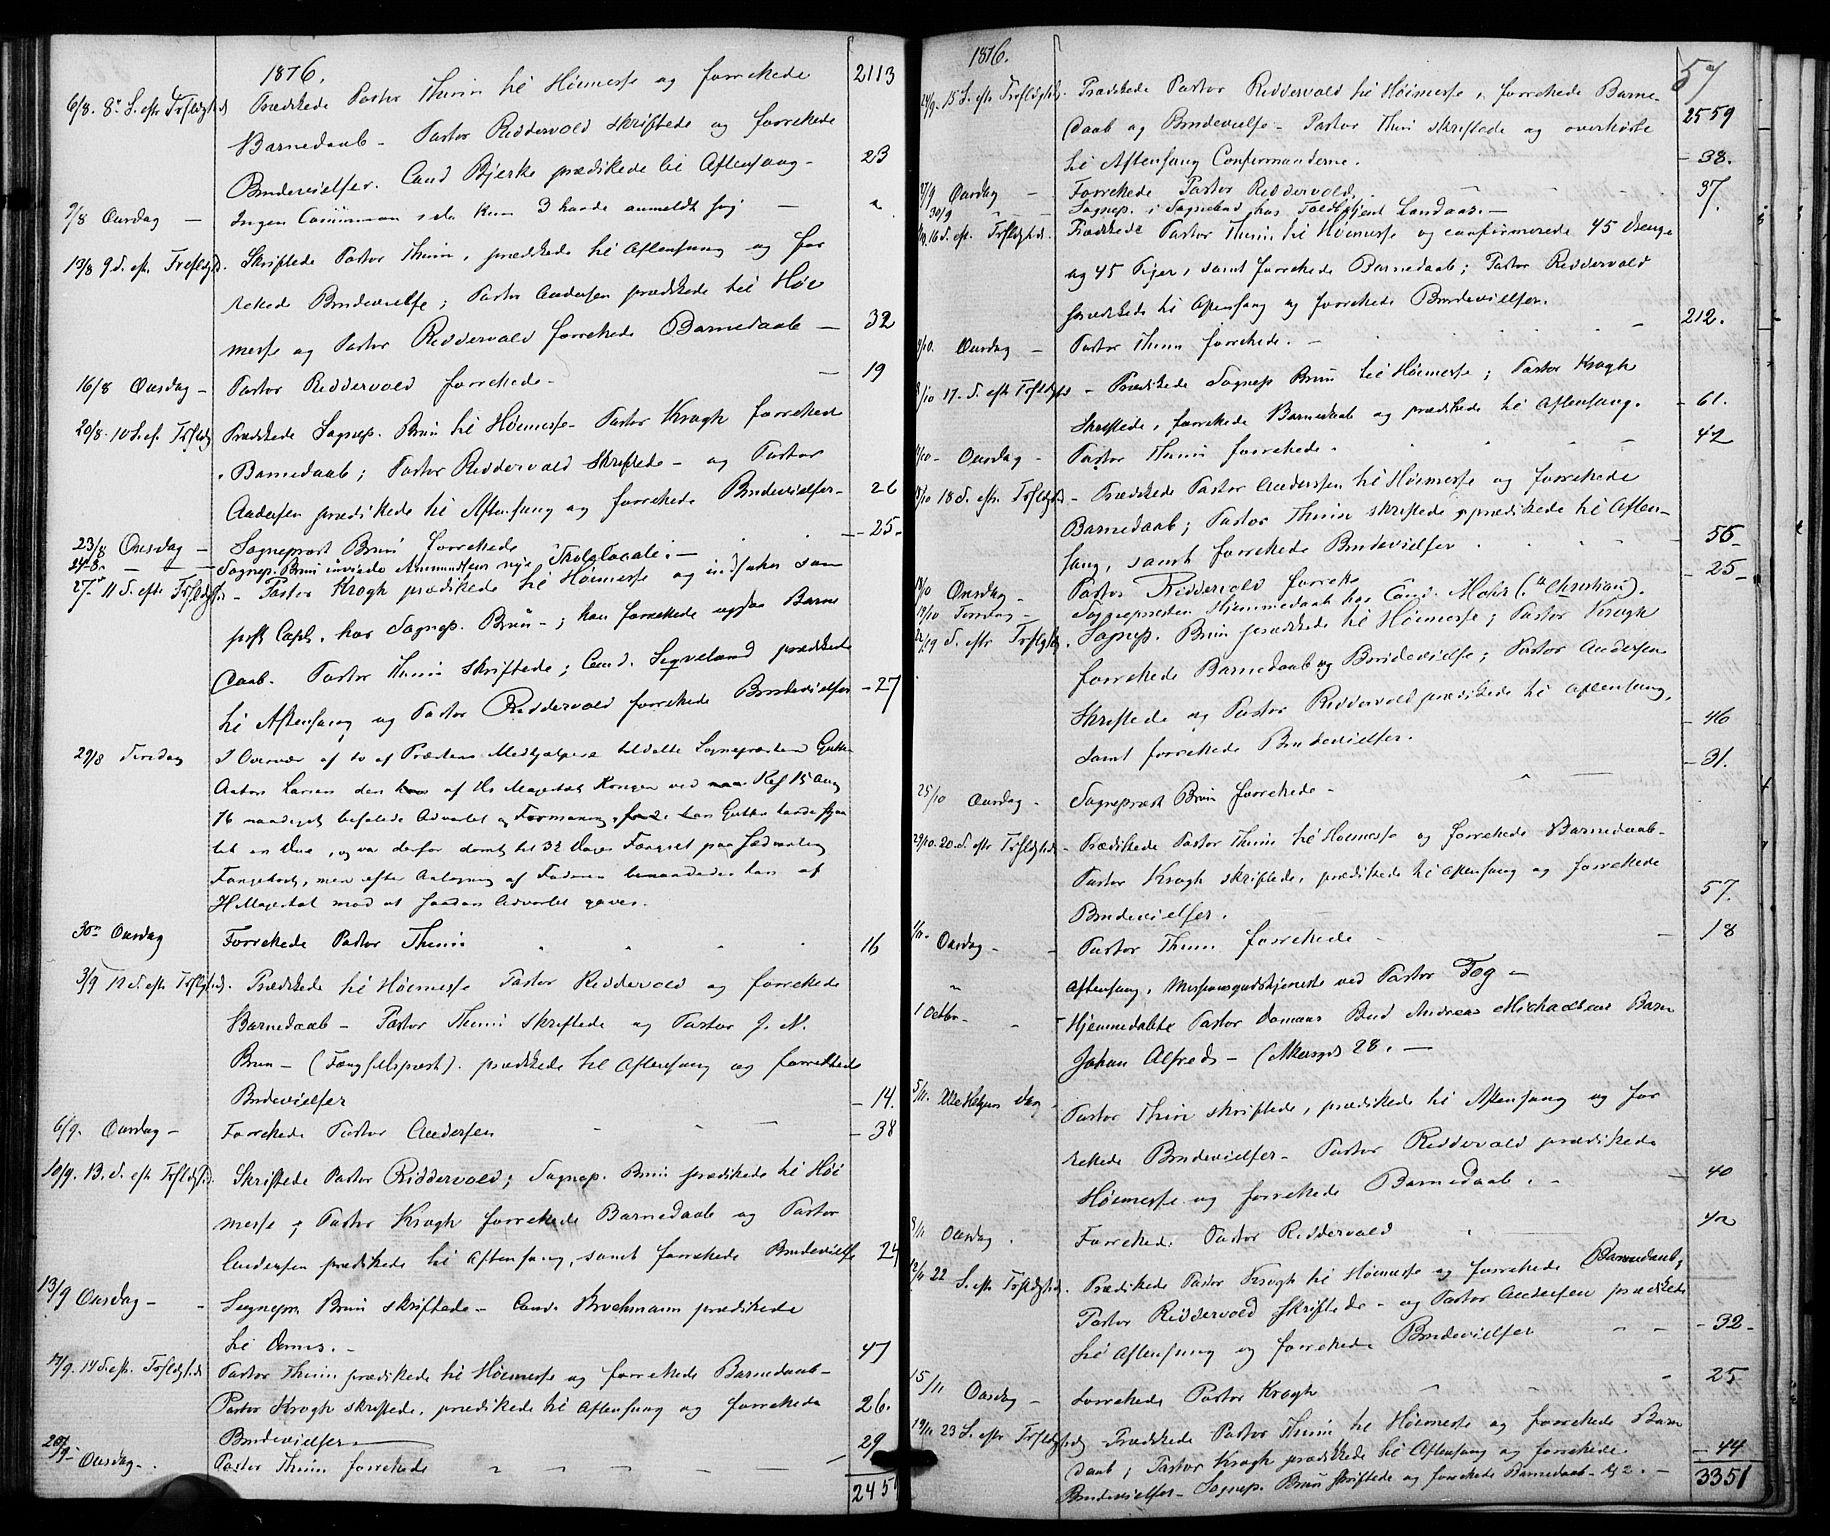 1876.
2113
6/8. 8de S. eftr Trefldghd Prædikede Pastor Thiim til Høimesse og forrettede
Barnedaab - Pastor Riddervold skriftede og forrettede
Brudevielser. Cand Bjerke prædikede til Aftensang - 23
9/8 Onsdag - Ingen Communion, da kun 3 havde anmeldt sig -
13/8 9 S. eftr Trefldghd. Skriftede Pastor Thiim, prædikede til Aftensang og for
rettede Brudevielse; Pastor Andersen prædikede til Høi
messe og Pastor Riddervold forrettede Barnedaab - 32
16/8 Onsdag - Pastor Riddervold forrettede - 19
20/8. 10 S. ef. Trfldgh Prædikede Sognep. Bruun til Høimesse - Pastor Krogh forrettede
Barnedaab; Pastor Riddervold skriftede - og Pastor
Andersen prædikede til Aftensang og forrettede Brudevielser - 26
23/8 Onsdag - Sogneprest Bruun forrettede - 25 -
24/8 - - Sognep. Bruun indviede Amundsens nye Skolelocale. -
27. 11 S. eftr Trfldghd. - Pastor Krogh prædikede til Høimesse og som
pers. Capl. hos Sognep. Bruun -; han forrettede ogsaa Barne
daab. Pastor Thiim skriftede; Cand. Segveland prædikede
til Aftensang og Pastor Riddervold forrettede Brudevielser - 27
29/8 Tirsdag I Overvær af to af Præstens Medhjælpere tildelte Sognepræsten Gutten
Anton Larsen den af Hs Majestæt Kongen ved Res 15 Aug
76 naadigst befalede Advarsel og Formaning,
let en Due, og var derfor dømt til 32 Dages Fængsel paa sædvanlig
Fangekost, men efter Ansøgning af Faderen benaadedes han af
H Majestæt mod at saadan Advarsel gaves.
30te Onsdag Forrettede Pastor Thiim 16
3/9 12 S. eftr Trefldghd. Prædikede til Høimesse Pastor Riddervold og forrettede
Barnedaab - Pastor Thiim skriftede og Pastor J. N.
Brun - (Fængselsprest). prædikede til Aftensang og forrettede
Brudevielser - 14.
6/9. Onsdag - Forrettede Pastor Andersen - 38
10/9. 13. S. eftr Trfldghd. Skriftede Pastor Riddervold; Sognep. Bruun prædikede til Høi
messe; Pastor Krogh forrettede Barnedaab og Pastor
Andersen prædikede til Aftensang, samt forrettede Brudevielse 24
13/9 Onsdag - - Sognepr. Bruun skriftede - Cand. Brochmann prædikede
til - 47
17/9. 14 S. eftr. Trfldghd Pastor Thiim prædikede til Høimesse og forrettede Barnedaab -
Pastor Krogh skriftede, prædikede til Aftensang og forrettede 26.
Brudevielser - 29
20/9 - Onsdag - Pastor Thiim forrettede
2451
1876.
57
24/9. 15 S. eftr Trefldghd. Prædikede Pastor Riddervold til Høimesse, forrettede Barne-
daab og Brudevielse - Pastor Thiim skriftede og overhørte 2559
til Aftensang Confirmanderne. - 38.
27/9 Onsdag - Forrettede Pastor Riddervold. 37.
30/9 Sognep. i Sognebud hos Toldbtjent Landaas. -
16 S. eftr. Trfldghd. Prædikede Pastor Thiim til Høimesse og confirmerede 45 Drenge
og 45 Piger, samt forrettede Barnedaab; Pastor Riddervold
prædikede til Aftensang og forrettede Brudevielser. 212.
/10. Onsdag - Pastor Thiim forrettede. -
8/10 17. S. eftr Trfldghd - Prædikede Sognep Bruun til Høimesse; Pastor Krogh
Skriftede, forrettede Barnedaab og prædikede til Aftensang. - 61.
/10 - Onsdag - Pastor Thiim forrettede. 42
15/10 18 S. eftr. Trfldghd - Prædikede Pastor Andersen til Høimesse og forrettede
Barnedaab; Pastor Thiim skriftede, prædikede til Aften-
sang, samt forrettede Brudevielser 56 -
18/10 Onsdag - Pastor Riddervold forrett. - 25 -
19/10 Torsdag - Sognepresten Hjemmedaab hos Cand. Mohr. ("Christian).
22/ 19 S. eftr Trfldghd. Sognep. Bruun prædikede til Høimesse; Pastor Krogh
forrettede Barnedaab og Brudevielse; Pastor Andersen
Skriftede og Pastor Riddervold prædikede til Aftensang,
samt forrettede Brudevielser. - 46
25/10 Onsdag - Sogneprest Bruun forrettede - - 31.
29/10. 20. S. eftr Trfldghd - Prædikede Pastor Thiim til Høimesse og forrettede Barnedaab -
Pastor Krogh skriftede, prædikede til Aftensang og forrettede
Brudevielser. 57.
1/11. Onsdag - - Pastor Thiim forrettede - 18
" Aftensang, Missionsgudstjeneste ved Pastor Tog -
1 Octbr - " Hjemmedøbte Pastor Barn
Johan Alfred - (Akersgd 28. -
5/11. Alle Helgens Dag - Pastor Thiim skriftede, prædikede til Aftensang og for
rettede Brudevielser - Pastor Riddervold prædikede
Høimesse og forrettede Barnedaab. - - 40
8/11 Onsdag. Forrettede Pastor Riddervold 42
12/11 22 S. eftr Trfldghd. Prædikede Pastor Krogh til Høimesse og forrettede Barnedaab;
Pastor Riddervold skriftede - og Pastor Andersen prædikede
til Aftensang og forrettede Brudevielser - 32 -
15/11 Onsdag - Forrettede Pastor Krogh 25
19/11 23 S. eftr Trfldghd - Prædikede Pastor Thiim til Høimesse og forrettede Barne
daab; Pastor Krogh prædikede til Aftensang og forrettede - 44
Brudevielser - Sognep. Bruun skriftede og forrettede Barnedaab -
3351